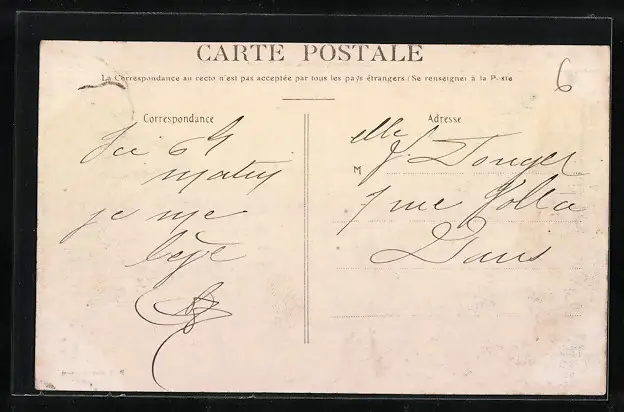 CARTE POSTALE
La Correspondance au recto n'est pas acceptée par tous les pays étrangers (Se renseigner à la Poste
6
Correspondance
Ici 6 h
matin
je me
lève
Adresse
M elle J. Douget
7 rue Volta
Paris